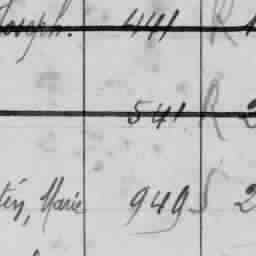 Joseph. 441 R
541 R 2
téy, Marie 949 S 2